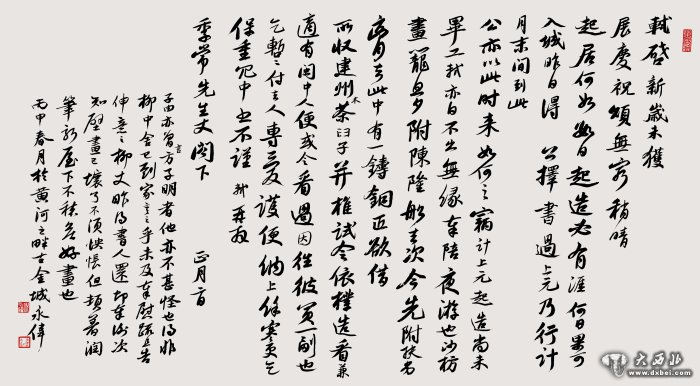 軾啓新歲未獲
展慶祝頌無窮稍晴
起居何如數日起造必有涯何日果可
入城昨日得 公擇書過上元乃行計
月末間到此
公亦以此時來如何々竊計上元起造尚未
畢工軾亦自不出無緣奉陪夜游也沙枋
畫籠旦夕附陳隆船去次今先附扶劣
膏去此中有一鑄銅匠欲借
所收建州木茶臼子并椎試令依樣造看兼
適有閩中人便或令看過因往彼買一副也
乞暫付去人專愛護便納上餘寒更乞
保重冗中恕不謹 軾再拜
季常先生丈閣下 正月二日
子由亦曾言方子明者他亦不甚怪也得非
柳中舍已到家言之乎未及奉慰疏且告
伸意々柳丈昨得書人還即奉謝次
知壁畫已壞了不須怏悵但頓著潤
筆新屋下不愁無好畫也
丙申春月於黃河之畔古金城永偉
大西北
www.dxbei.com